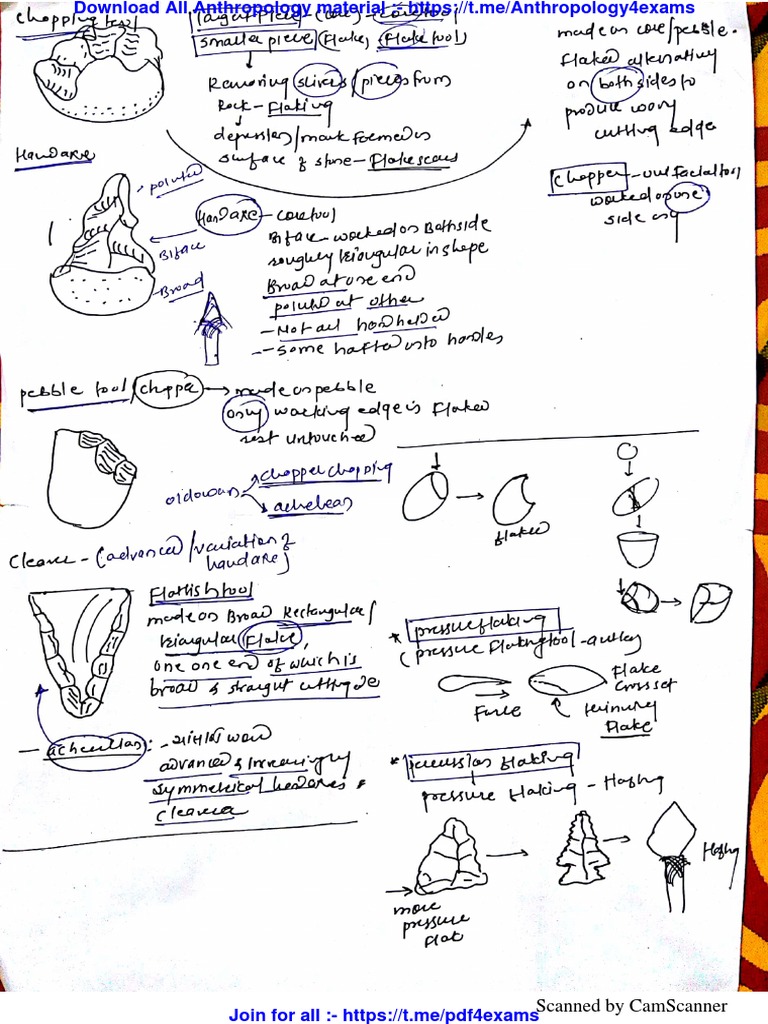 Download All Anthropology material :- https://t.me/Anthropology4exams
Chopping tool
larger piece (core) - core tool
smaller piece (flake, Flake tool)
Removing slivers/pieces from
Rock - Flaking
depression/mark formed on
surface of stone - Flake scars
made on core/pebble.
Flaked alternating
on both sides to
produce wavy
cutting edge
Chopper - unifacial tool
worked on one
side only
Handaxe
pointed
Biface
Broad
Handaxe - core tool
Biface - worked on Both side
roughly triangular in shape
Broad at one end
pointed at other
- Not all hand held
- Some hafted onto handles
pebble tool/chopper → made on pebble
only working edge is Flaked
rest untouched
oldowan
chopper chopping
acheulean
flaked
Cleaver - (advanced /variation of
handaxe)
Flattish tool
made on Broad Rectangular/
triangular Flake,
one one end of which is
broad & straight cutting edge
- acheulian : -
advanced & Increasingly
Symmetrical handaxes &
Cleaver
* pressure flaking
(pressure flaking tool - antler)
Force
Flake
Flake
* percussion flaking
pressure flaking - Hafting
more
pressure
flat
Hafting
Scanned by CamScanner
Join for all :- https://t.me/pdf4exams